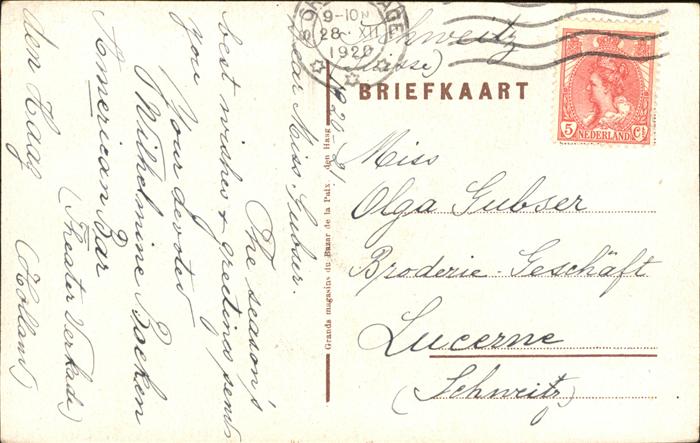 Schweitz
(Suisse)
'S GRAVENHAGE
9-10 N
28 XII
1920
5 Ct
NEDERLAND
BRIEFKAART
Miss
Olga Gubser
Broderie-Geschäft
Lucerne
(Schweitz)
Grands magasins du Bazar de la Paix, den Haag
1920-21
Dear Miss Gubser.
The season's
best wishes & greetings sends
you
Your devoted
Wilhelmine Boeken
American Bar
(Theater Verkade)
den Haag (Holland)